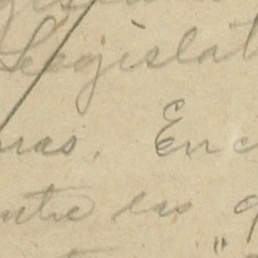 Legislat
ras. En c
ntre las q